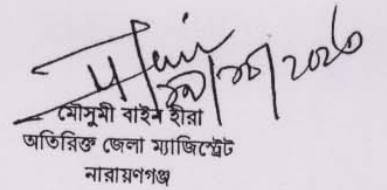 মৌসুমী বাইন হীরা
অতিরিক্ত জেলা ম্যাজিস্ট্রেট
নারায়ণগঞ্জ